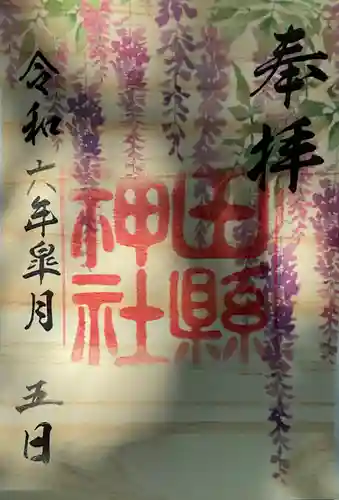 奉拝
田縣
神社
令和六年皐月五日